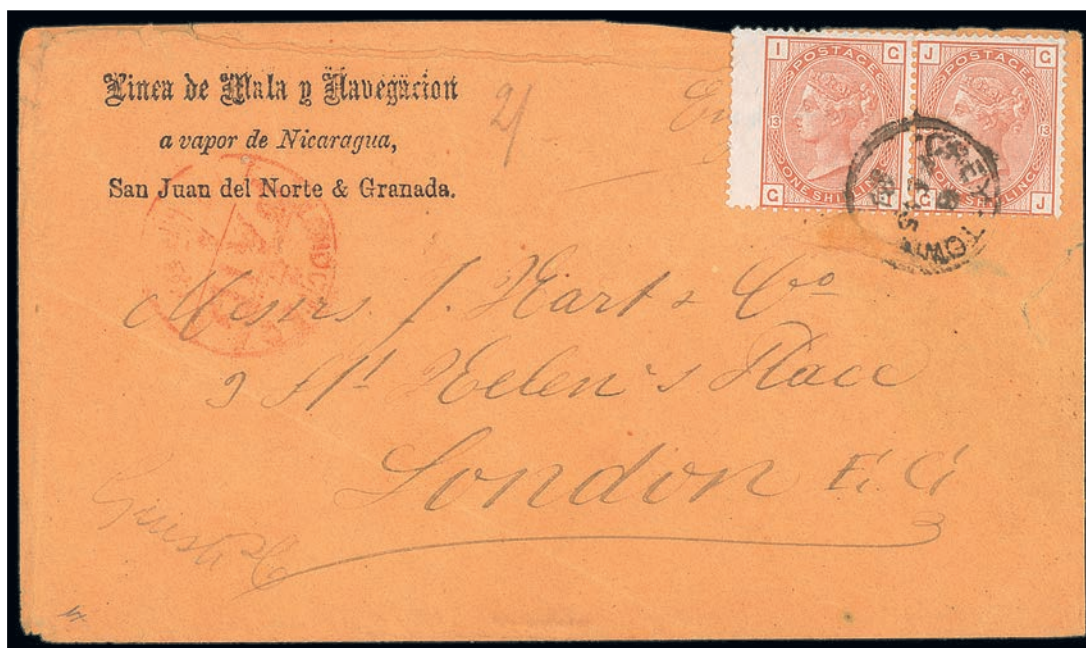 Linea de Mala y Navegacion
a vapor de Nicaragua,
San Juan del Norte & Granada.
2/
I G J G
POSTAGE POSTAGE
13 13
ONE SHILLING ONE SHILLING
G G J
GREY-TOWN
Messrs. J. Hart & Co
9 St Helen's Place
London E.C.